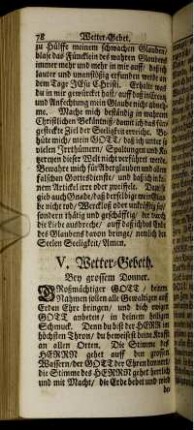 78 Wetter-Gebet.
zu Hülffe meinem schwachen Glauben/
blase das Füncklein des wahren Glaubens
immer mehr und mehr in mir auff/ daß ich
lauter und unanstößig erfunden werde an
dem Tage JEsu Christi. Erhalte was
du in mir gewircket hast: auff daß in Creutz
und Anfechtung mein Glaube nicht abneh-
me. Mache mich beständig in wahrem
Christlichen Bekäntnüs damit ich das für-
gesteckte Ziel der Seeligkeit erreiche. Be-
hüte mich/ mein GOTT/ daß ich unter so
vielen Irrthümern/ Spaltungen und Ke-
tzereyen dieser Welt nicht verführt werde.
Bewahre mich für Aberglauben und allem
falschen Gottesdienste/ und daß ich an kei-
nem Artickel irre oder zweiffele. Durch
gieb auch Gnade/ daß derselbige mein Glau-
be nicht todt/ Wercklos oder unkräfftig sey/
sondern thätig und geschäfftig/ der durch
die Liebe ausbreche/ auff daß ich das Ende
des Glaubens davon bringe/ nemlich der
Seelen Seeligkeit/ Amen.
V. Wetter-Gebeth.
Bey grossem Donner.
GRoßmächtiger GOTT/ deinem
Nahmen sollen alle Gewaltigen auff
Erden Ehre bringen/ und dich ewiger
GOTT anbeten/ in deinem heiligen
Schmuck. Denn du bist der HERR im
höchsten Thron/ du beweisest deine Krafft
an allen Orten. Die Stimme des
HERRN gehet auff den grossen
Wassern/ der GOTT der Ehren donnert/
die Stimme des HERRN gehet herrlich
und mit Macht/ die Erde bebet und wird